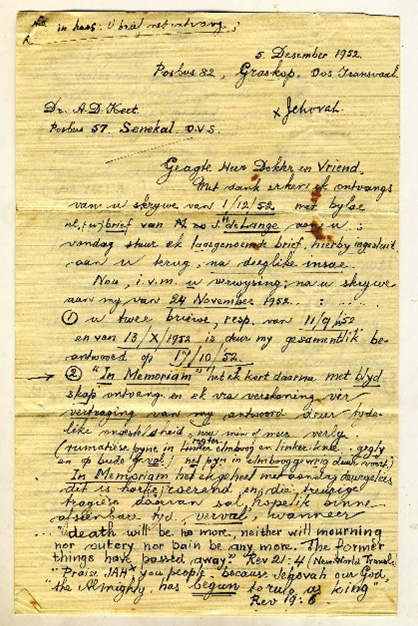 in haas: U brief net ontvang.
5. Desember 1952.
Posbus 82, Graskop, Oos Transvaal.
Dr. A.D. Keet. x Jehovah.
Posbus 57. Senekal. O.V.S.
Geagte Heer Dokter en Vriend.
Met dank erken ek ontvangs
van u skrywe van 1/12/52. met bylae
brief van de Lange aan u;
vandag stuur ek laasgenoemde brief, hierby ingesluit
aan u terug, na deeglike insae.
Nou, i.v.m. u verwysing, na u skrywe
aan my van 24 November 1952.
① u twee briewe, resp. van 11/9/52
en van 13/X/1952 is deur my gesamentlik be-
antwoord op 17/10/52.
② "In Memoriam" het ek kort daarna met blyd
skap ontvang en ek vra verskoning ver
vertraging van my antwoord deur tyde-
like ongesteldheid, nou min of meer verby.
(rumatiese pyne in linker elmboog en linker knie
In Memoriam het ek geheel met aandag deurgelees
dit is hartroerend en die treurige
tragedie daarvan sal hopelik binne
afsienbare tyd verval, wanneer
"death will be no more, neither will mourning
nor outcry nor pain be any more. The former
things have passed away." Rev 21:4 (New World Transl.
"Praise JAH* you people, because Jehovah our God,
the Almighty, has begun to rule as king"
Rev 19:6